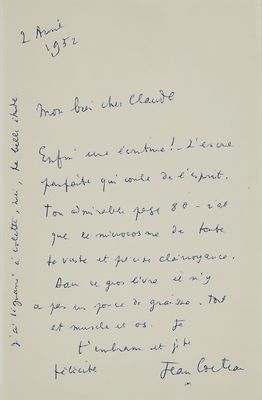 2 Avril
1952
Mon bien cher Claude
Enfin une écriture! - L'encre
parfaite qui coule de l'esprit.
Ton admirable page 80 - n'est
que le microcosme de toute
ta vaste et
clairvoyance.
Dans ce gros livre il n'y
a pas un pouce de graisse. Tout
est muscle et os. Je
t'embrasse et je te
félicite
Jean Cocteau
J'ai signalé à Colette, hier, ta belle étude.